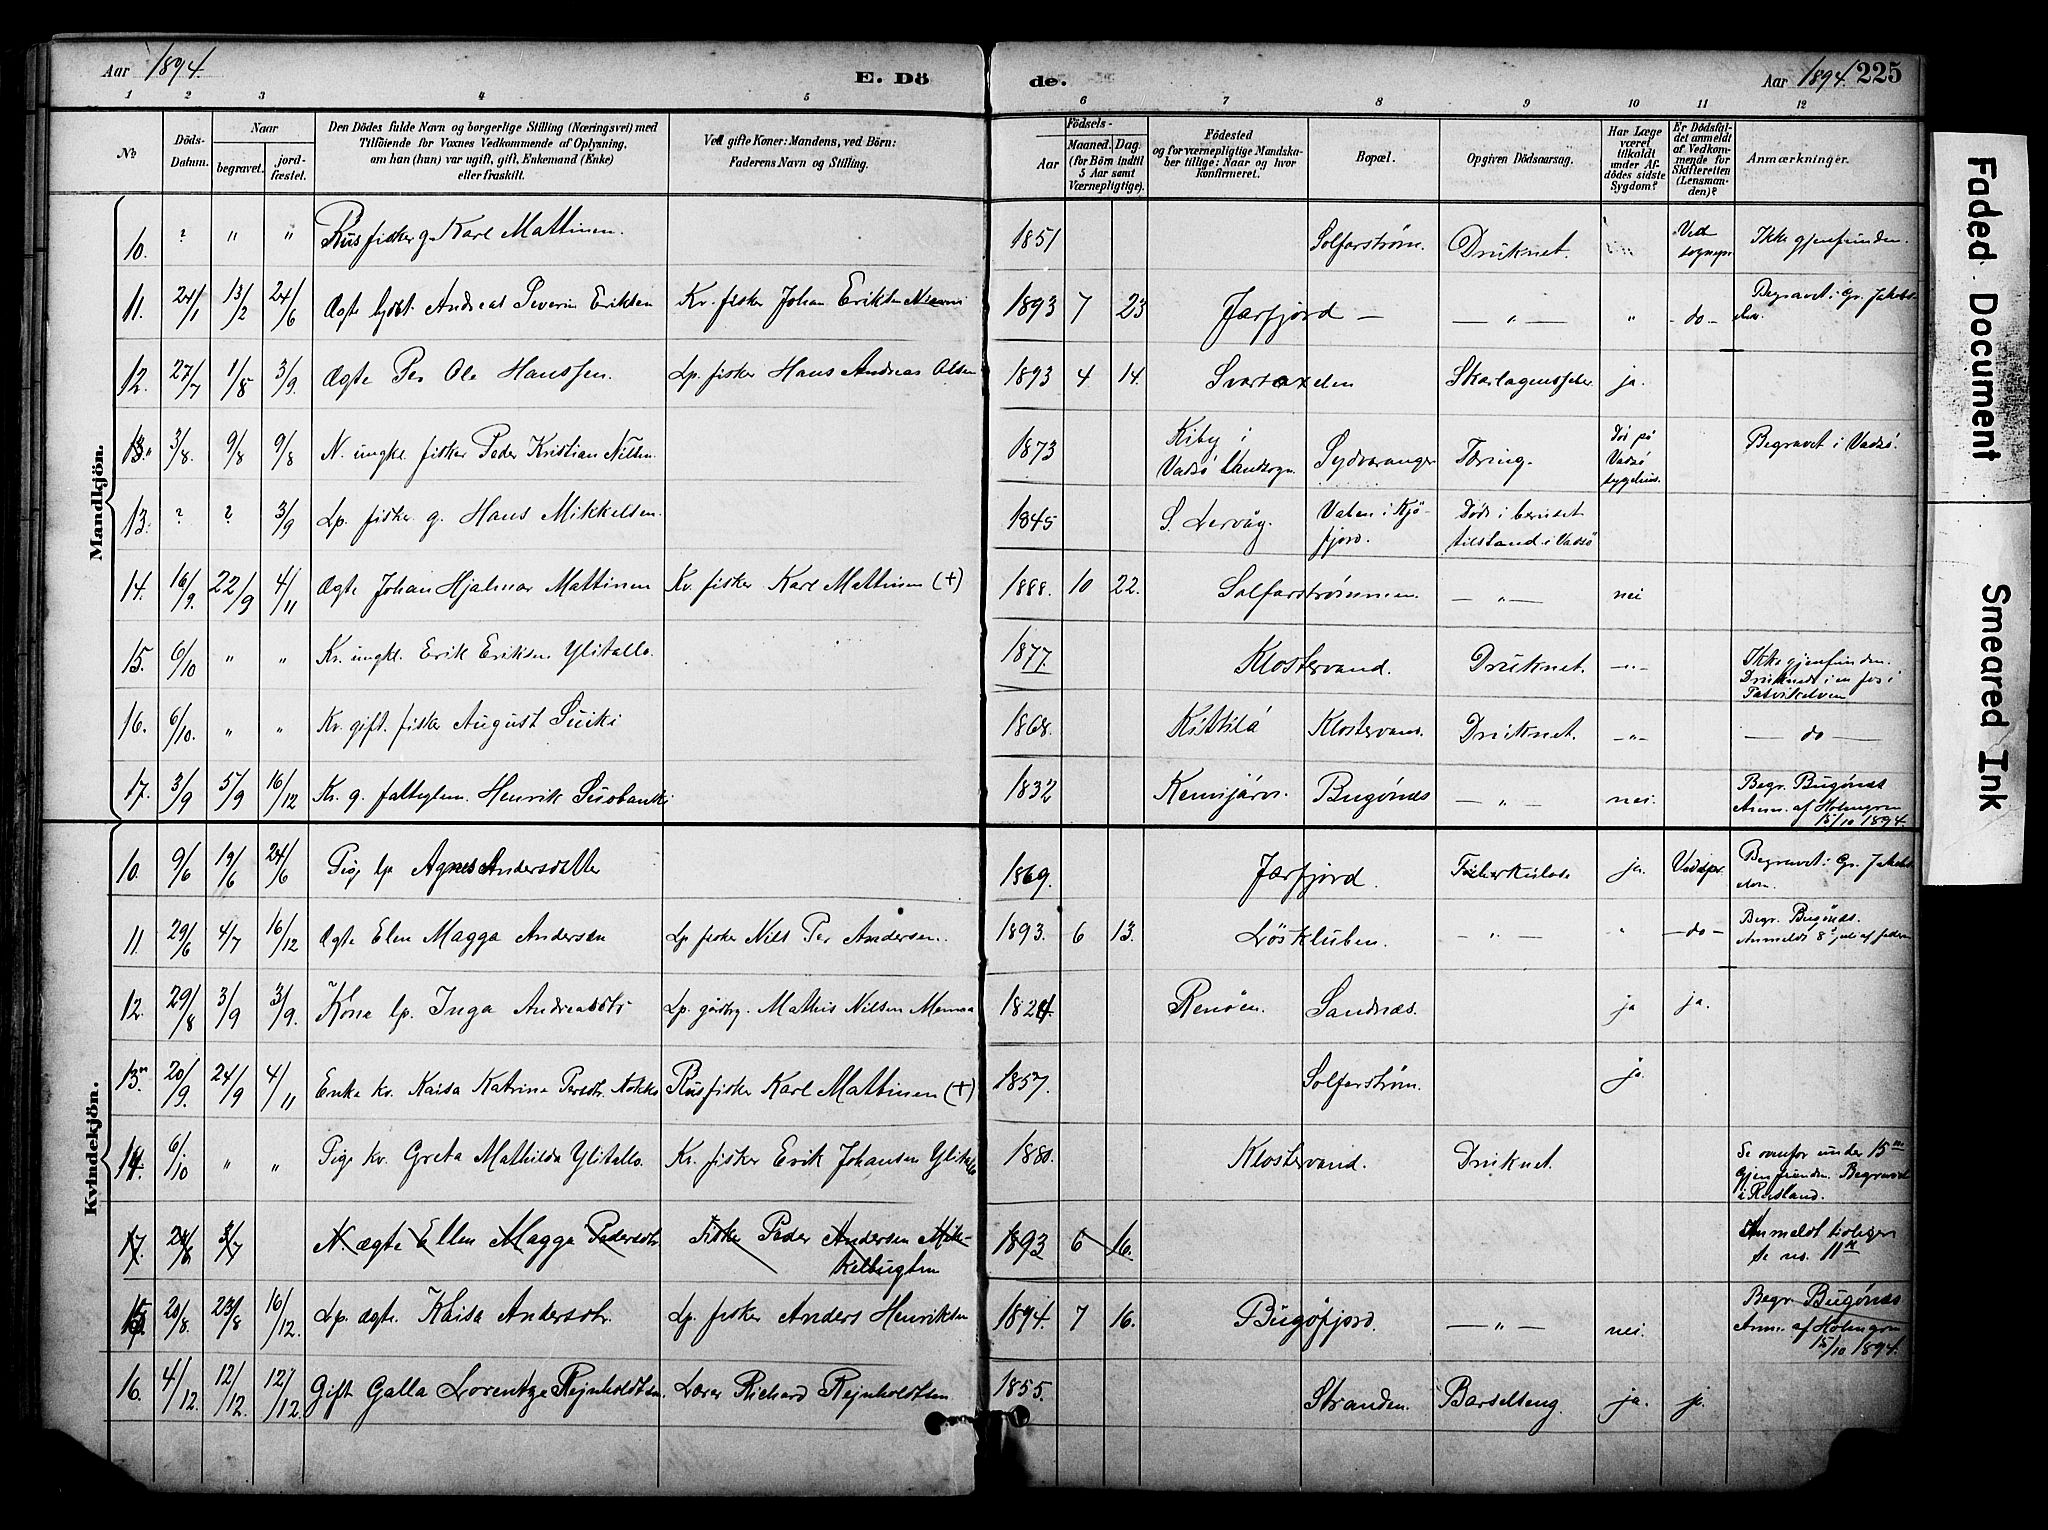 Aar 1894. E. Dö de. Aar 1894. 225
1 2 3 4 5 6 7 8 9 10 11 12
No
Döds-Datum.
Naar
begravet.
jord-fæstet.
Den Dödes fulde Navn og borgerlige Stilling (Næringsvei) med
Tilföiende for Voxnes Vedkommende af Oplysning,
om han (hun) var ugift, gift, Enkemand (Enke)
eller fraskilt.
Ved gifte Koner: Mandens, ved Börn:
Faderens Navn og Stilling.
Födsels-
Aar
Maaned. Dag.
(for Börn indtil
5 Aar samt
Værnepligtige).
Födested
og for værnepligtige Mandska-
ber tillige: Naar og hvor
konfirmeret.
Bopæl.
Opgiven Dödsaarsag.
Har Læge
været
tilkaldt
under Af-
dödes sidste
Sygdom?
Er Dödsfal-
det anmeldt
af Vedkom-
mende for
Skifteretten
(Lensman-
den)?
Anmærkninger.
Mandkjön.
10. ? " " Rus fisker g. Karl Mattinen. 1851 Solfarström. Druknet. Ved sognepr. Ikke gjenfunden.
11. 24/1 13/2 24/6 Ægte lydst. Andreas Severin Eriksen Kv. fisker Johan Eriksen Niemi 1893 7 23 Jarfjord — — " — " - do - Begravet i Gr. Jakobs-elv.
12. 27/7 1/8 3/9 Ægte Per Ole Hanssen. Lp. fisker Hans Andreas Olsen 1893 4 14. Svartaxelen Skarlagensfeber ja.
13. 3/8. 9/8 9/8 N. ungkl. fisker Peder Kristian Nilsen. 1873 Kiby i Vadsö Landsogn. Sydvaranger Tæring. Död på Vadsö sygehus. Begravet i Vadsö.
13. ? ? 3/9 Lp. fisker g. Hans Mikkelsen. 1845 S. Lervåg. Valen i Kjö-fjord. Döds i beruset tilstand i Vadsö
14. 16/9. 22/9 4/11 Ægte Johan Hjalmar Mattinen Kv. fisker Karl Mattinen (+) 1888. 10 22. Solfarströmmen — " — nei
15. 6/10 " " Kv. ungkl. Erik Eriksen Ylitallo. 1877. Klostervand. Druknet. — " — Ikke gjenfunden. Druknet i en fos i Tatvikelven
16. 6/10. " " Kv. gift. fisker August Suiki 1868. Kittilä Klostervand. Druknet. — " — — do —
17. 3/9 5/9 16/12 Kv. g. Henrik 1832 Kemijärv. Bugönes — " — nei. Begr. Bugönes Anm. af Holmgren 15/10 1894.
Kvindekjön.
10. 9/6 19/6 24/6 Pige lp Agnes Andersdatter 1869. Jarfjord. Tuberkulose ja. Ved sgpr. Begravet i Gr. Jakobs elven.
11. 29/6 4/7 16/12 Ægte Elen Magga Andersen Lp fisker Nils Per Andersen. 1893. 6 13. Löskluben. — " — " — do — Begr. Bugönes. Anmeldt 8 juli af faderen
12. 29/8 3/9 3/9. Kone lp. Inga Andreasdtr Lp. gårdbr. Mathis Nilsen Menna 1824. Renöen. Sandnæs. ja ja.
13. 20/9. 24/9 4/11 Enke kv. Kaisa Katrine Persdtr. Nokko Rus fisker Karl Mattinen (+) 1857. Solfarström. ja.
14. 6/10 " " Pige kv. Greta Mathilda Ylitallo. Kv. fisker Erik Johansen Ylitallo 1880. Klostervand. Druknet. Se ovenfor under 15 Gjenfunden. Begravet i Rusland.
17. 3/7 N. ægte Ellen Magga Pedersdtr Fisker Peder Andersen Mik-kelbugten 1893 6 16. Anmeldt tidligere Se no. 11
15. 20/8. 23/8 16/12. Lp. ægte Kaisa Andersdtr. Lp. fisker Anders Henriksen 1894. 7 16. Bugöfjord. — " — nei. Begr. Bugönes Anm. af Holmgren 15/10 1894.
16. 4/12. 12/12. 12/12. Gift Galla Lorentze Rejnholdtsen. Lærer Richard Rejnholdtsen. 1855. Stranden. Barselseng. ja. ja.
Faded Document
Smeared Ink